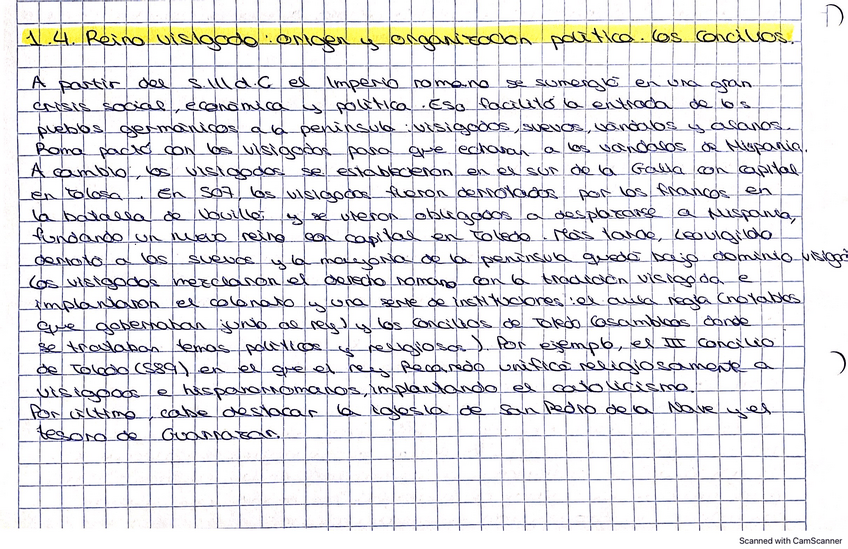 1.4. Reino visigodo: origen y organización política. Los concilios.
A partir del s.III d.C el Imperio romano se sumergió en una gran
crisis social, económica y política. Eso facilitó la entrada de los
pueblos germánicos a la península: visigodos, suevos, vándalos y alanos.
Roma pactó con los visigodos para que echaran a los vándalos de Hispania.
A cambio, los visigodos se establecieron en el sur de la Galia con capital
en Tolosa. En 507, los visigodos fueron derrotados por los francos en
la batalla de Vouillé, y se vieron obligados a desplazarse a Hispania,
fundando un nuevo reino con capital en Toledo. Más tarde, Leovigildo
derrotó a los suevos y la mayoría de la península quedó bajo dominio visigodo
Los visigodos mezclaron el derecho romano con la tradición visigoda e
implantaron el colonato y una serie de instituciones: el aula regia (notables
que gobernaban junto al rey) y los concilios de Toledo (asambleas donde
se trataban temas políticos y religiosos). Por ejemplo, el III Concilio
de Toledo (589) en el que el rey Recaredo unificó religiosamente a
visigodos e hispanorromanos, implantando el catolicismo.
Por último, cabe destacar la iglesia de San Pedro de la Nave y el
tesoro de Guarrazar.
Scanned with CamScanner